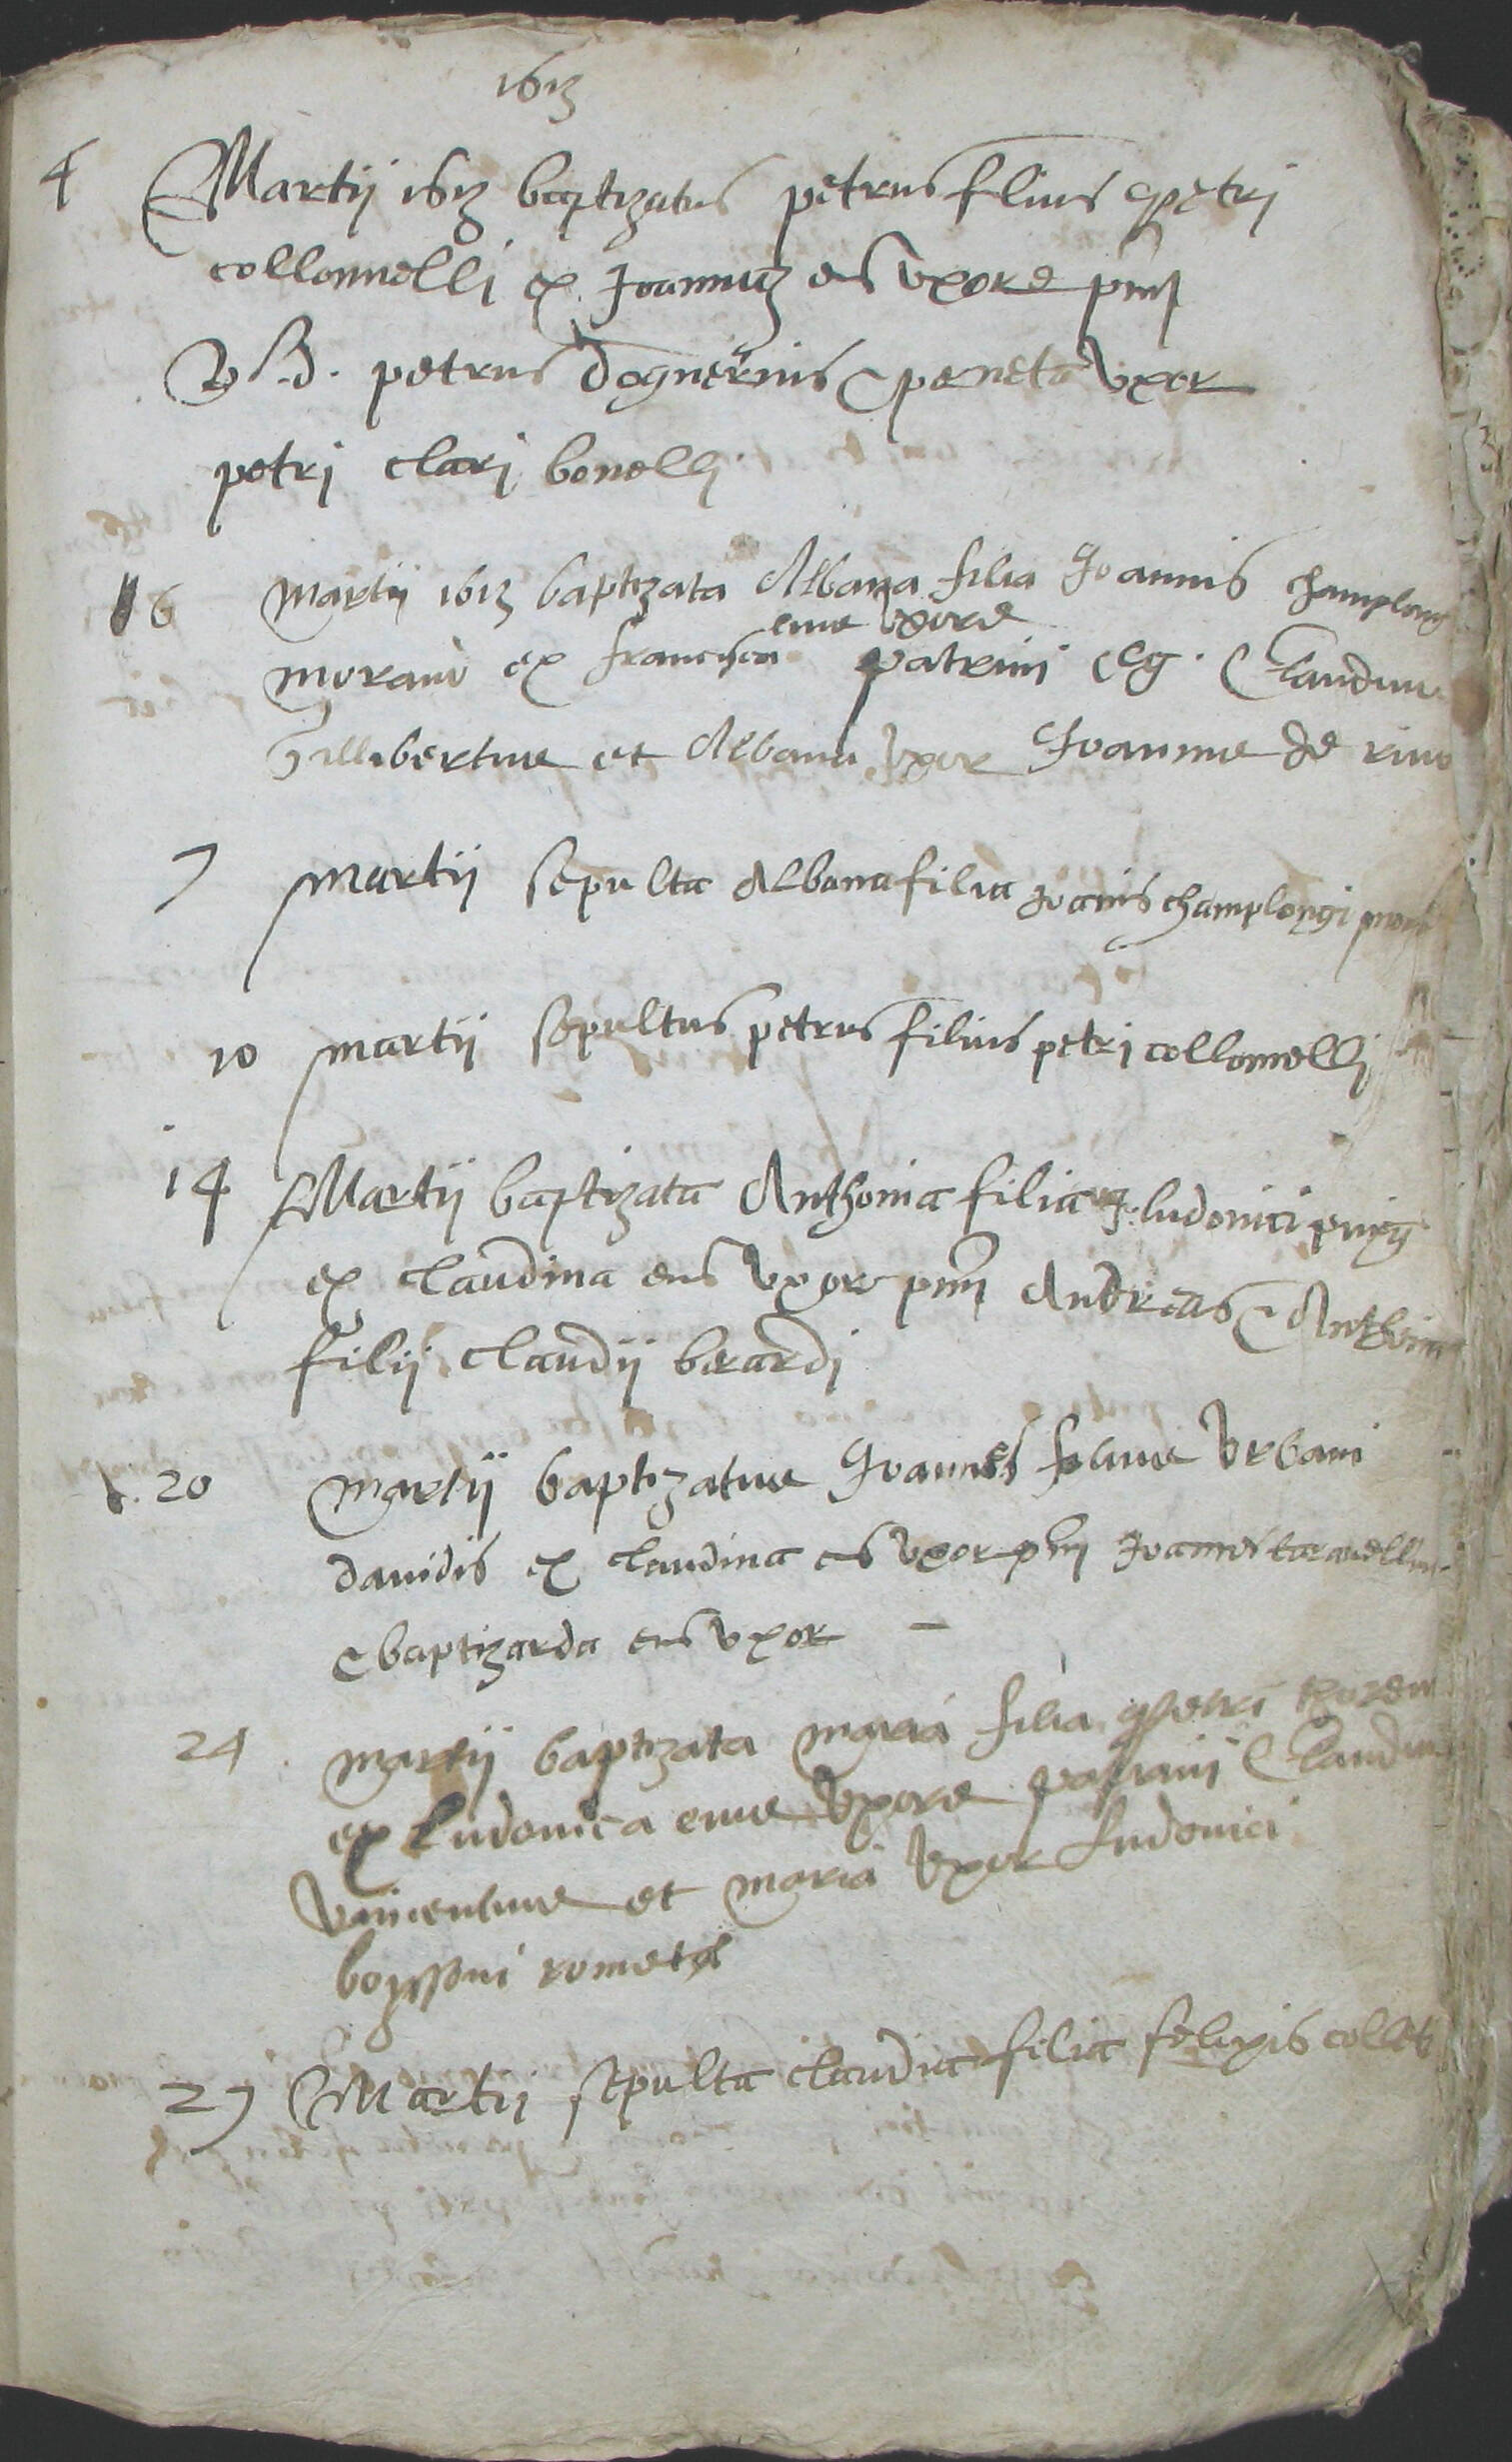 1613
4 Martij 1613 baptizatus petrus filius petri
collonnelli ex Joannaz eius uxore pnj
petrus dognerius & peneta uxor
petri clari bonelli
6 Martij 1613 baptizata Albana filia Joannis champlong
eius uxore
morand ex francisca patrini Eg. Claudius
Jllibertus et Albana uxor Joannis de rivo
7 martij sepulta Albana filia Joanis champlongi
10 martij sepultus petrus filius petri collomelli
14 Martij baptizata Anthonia filia ludovici
ex claudina eius uxore pnj Andreas & Anthoina
filij claudij berardi
20 martij baptizatus Joannes filius Urbani
davidis ex claudina eius uxor pnj Joannes taravellus
& baptizarda eius uxor -
24 martij baptizata maria filia petri
ex Ludovica eius uxore patrini Claudius
vincentius et maria uxor Ludovici
boyssoni rometa
27 Martij sepulta claudia filia felixis collet